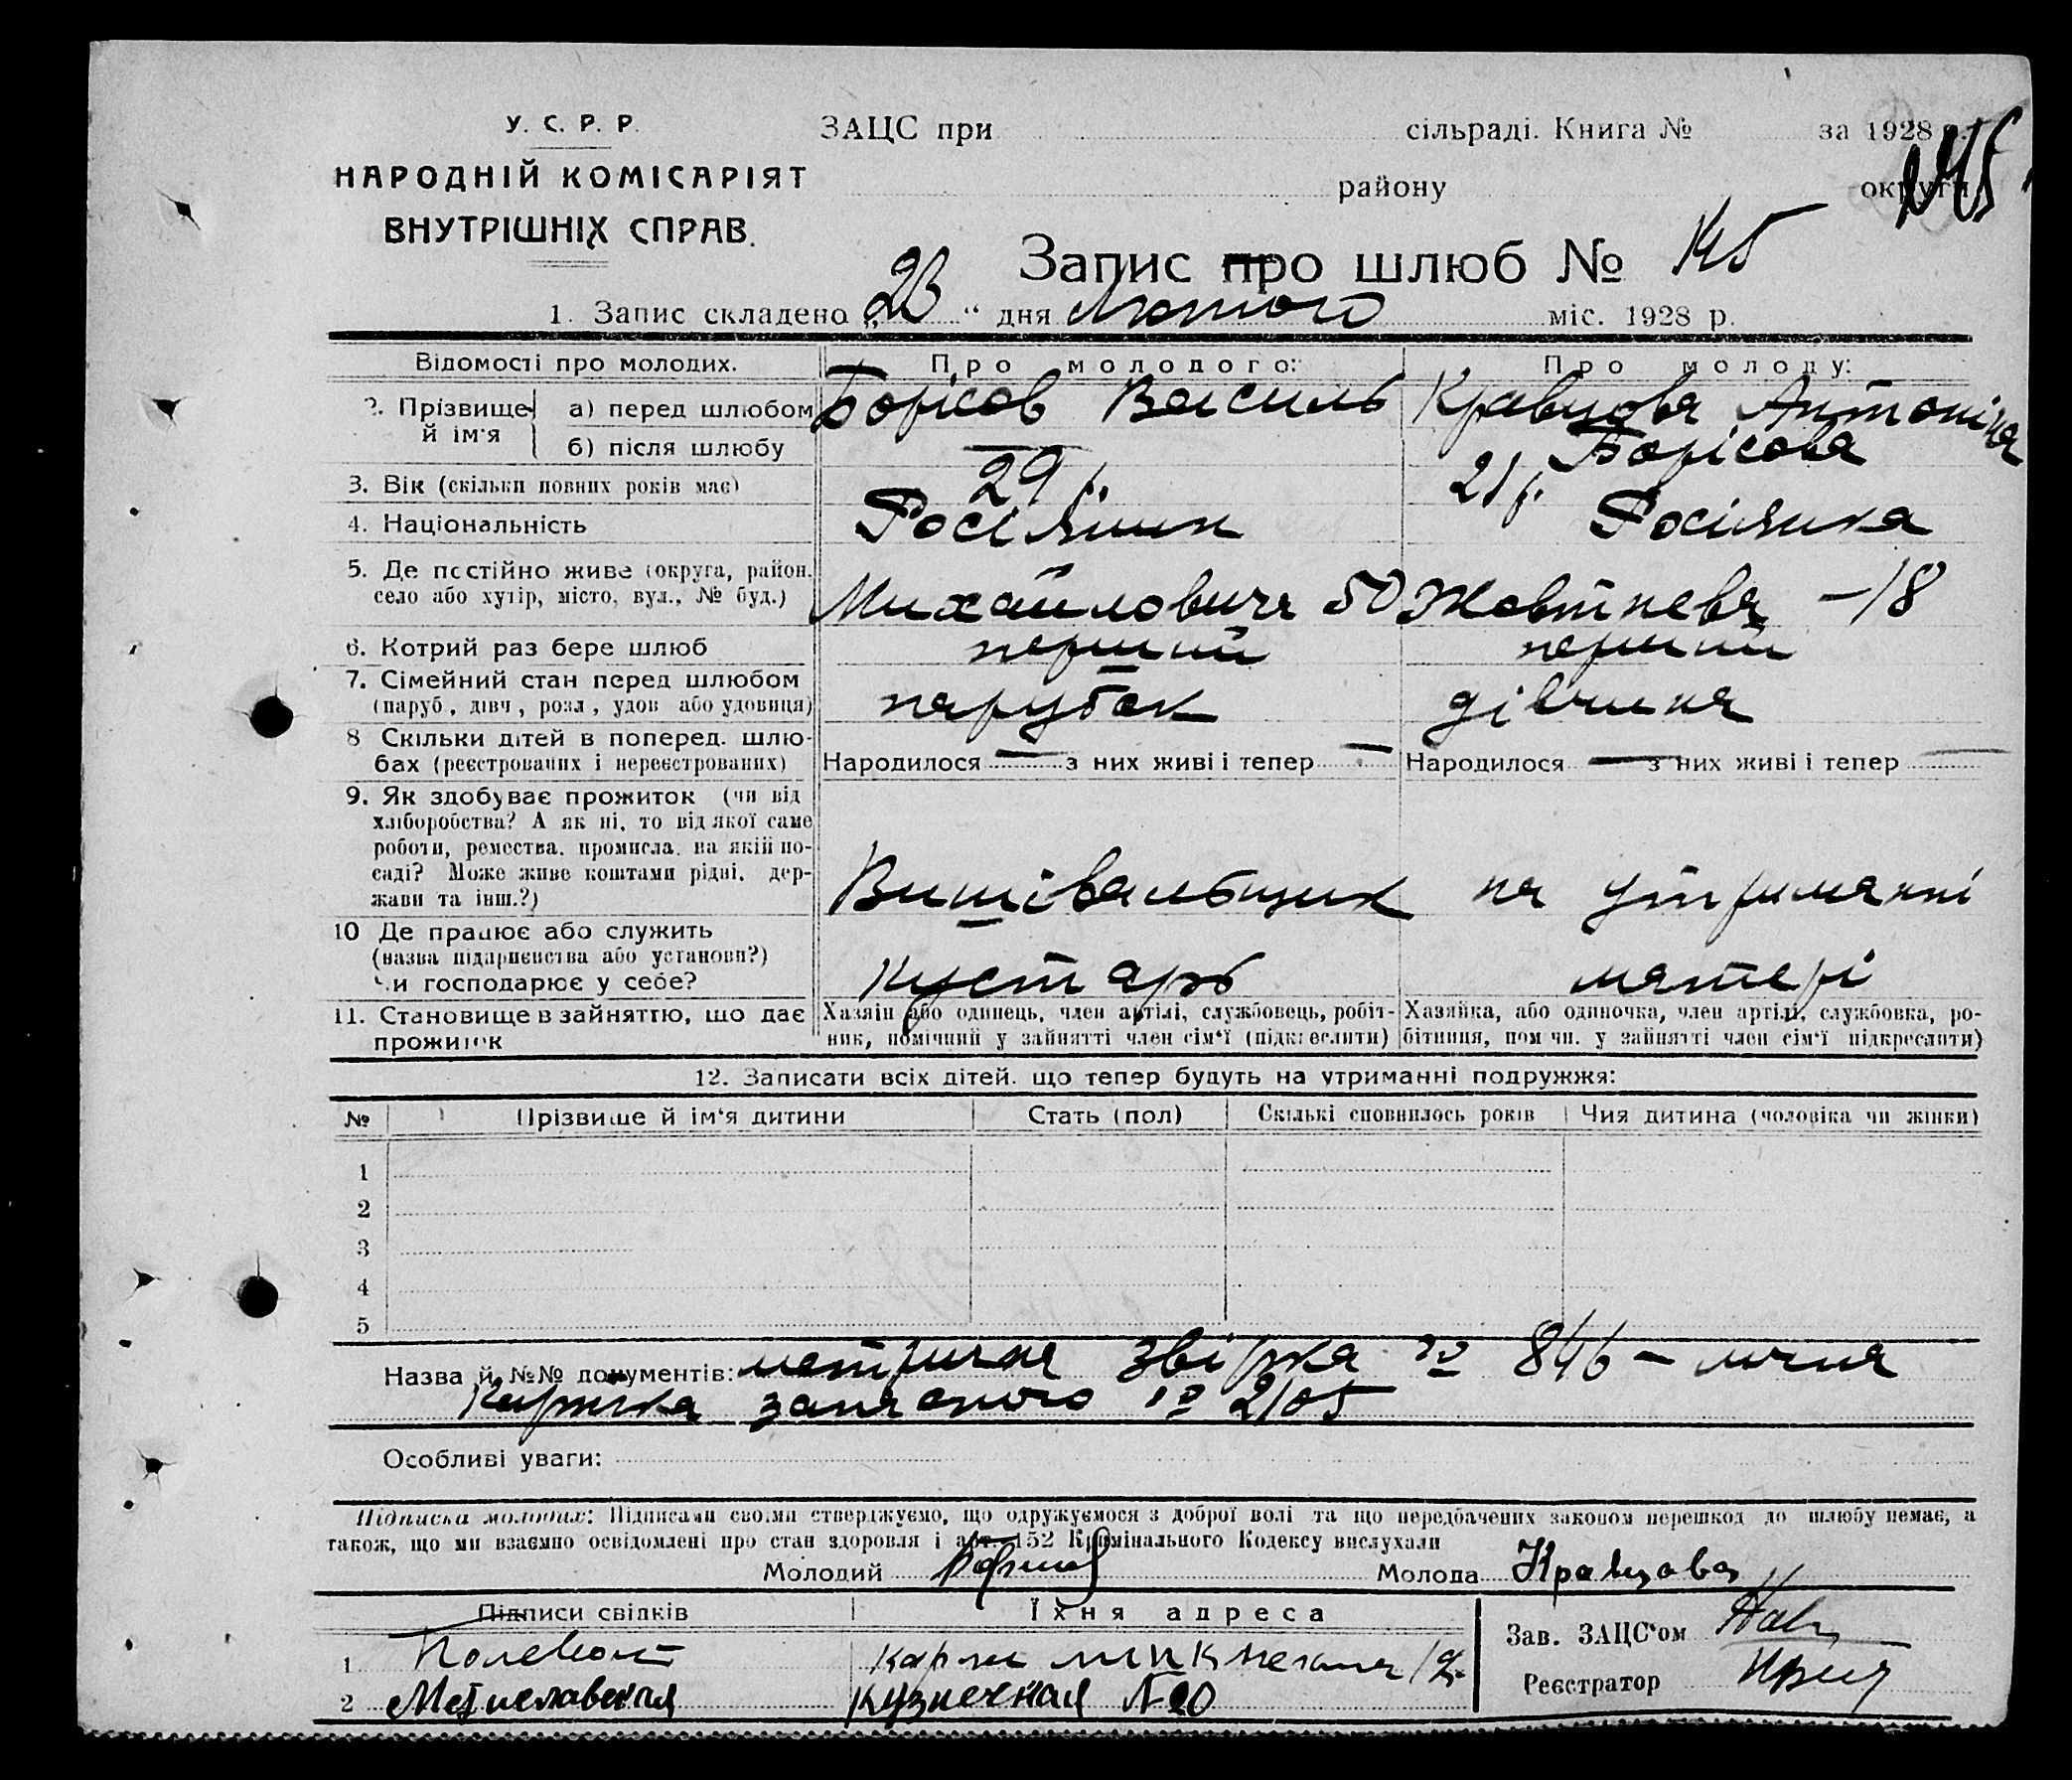 У. С. Р. Р.
НАРОДНІЙ КОМІСАРІЯТ
ВНУТРІШНІХ СПРАВ.
ЗАЦС при сільраді. Книга № за 1928 р.
району округи
145
Запис про шлюб № 145
1. Запис складено „23“ дня Лютого міс. 1928 р.
Відомості про молодих. Про молодого: Про молоду:
2. Прізвище й ім'я
а) перед шлюбом Борісов Василь Кравцова Антоніна
б) після шлюбу — Борісова
3. Вік (скільки повних років має) 29 р. 21 р.
4. Національність Росіянин Росіянка
5. Де постійно живе (округа, район, село або хутір, місто, вул., № буд.) Михайловича 50 Жовтнева – 18
6. Котрий раз бере шлюб перший перший
7. Сімейний стан перед шлюбом (паруб., дівч., розл., удов або удовиця) парубок дівчина
8 Скільки дітей в поперед. шлюбах (реєстрованих і нереєстрованих) Народилося — з них живі і тепер — Народилося — з них живі і тепер —
9. Як здобуває прожиток (чи від хліборобства? А як ні, то від якої саме роботи, ремества, промисла, на якій посаді? Може живе коштами рідні, держави та інш.?) Вишівальбщик на утриманні
10 Де працює або служить (назва підприємства або установи?) Чи господарює у себе? кустарь матері
11. Становище в зайняттю, що дає прожиток
Хазяін або одинець, член артілі, службовець, робітник, помічний у зайнятті член сім'ї (підкреслити)
Хазяйка, або одиночка, член артілі, службовка, робітниця, пом чн. у зайнятті член сім'ї підкреслити)
12. Записати всіх дітей, що тепер будуть на утриманні подружжя:
№ Прізвище й ім'я дитини Стать (пол) Скількі сповнилось років Чия дитина (чоловіка чи жінки)
1
2
3
4
5
Назва й №№ документів: метрична звірка № 846 – лична
картка запасного № 2105
Особливі уваги:
Підписка молодих: Підписами своїми стверджуємо, що одружуємося з доброї волі та що передбачених законом перешкод до шлюбу немає, а
також, що ми взаємно освідомлені про стан здоровля і арт. 152 Кримінального Кодексу вислухали
Молодий Борисов Молода Кравцова
Підписи свідків Їхня адреса
1
2 Мстиславская Кузнечная №20
Зав. ЗАЦС'ом
Реєстратор